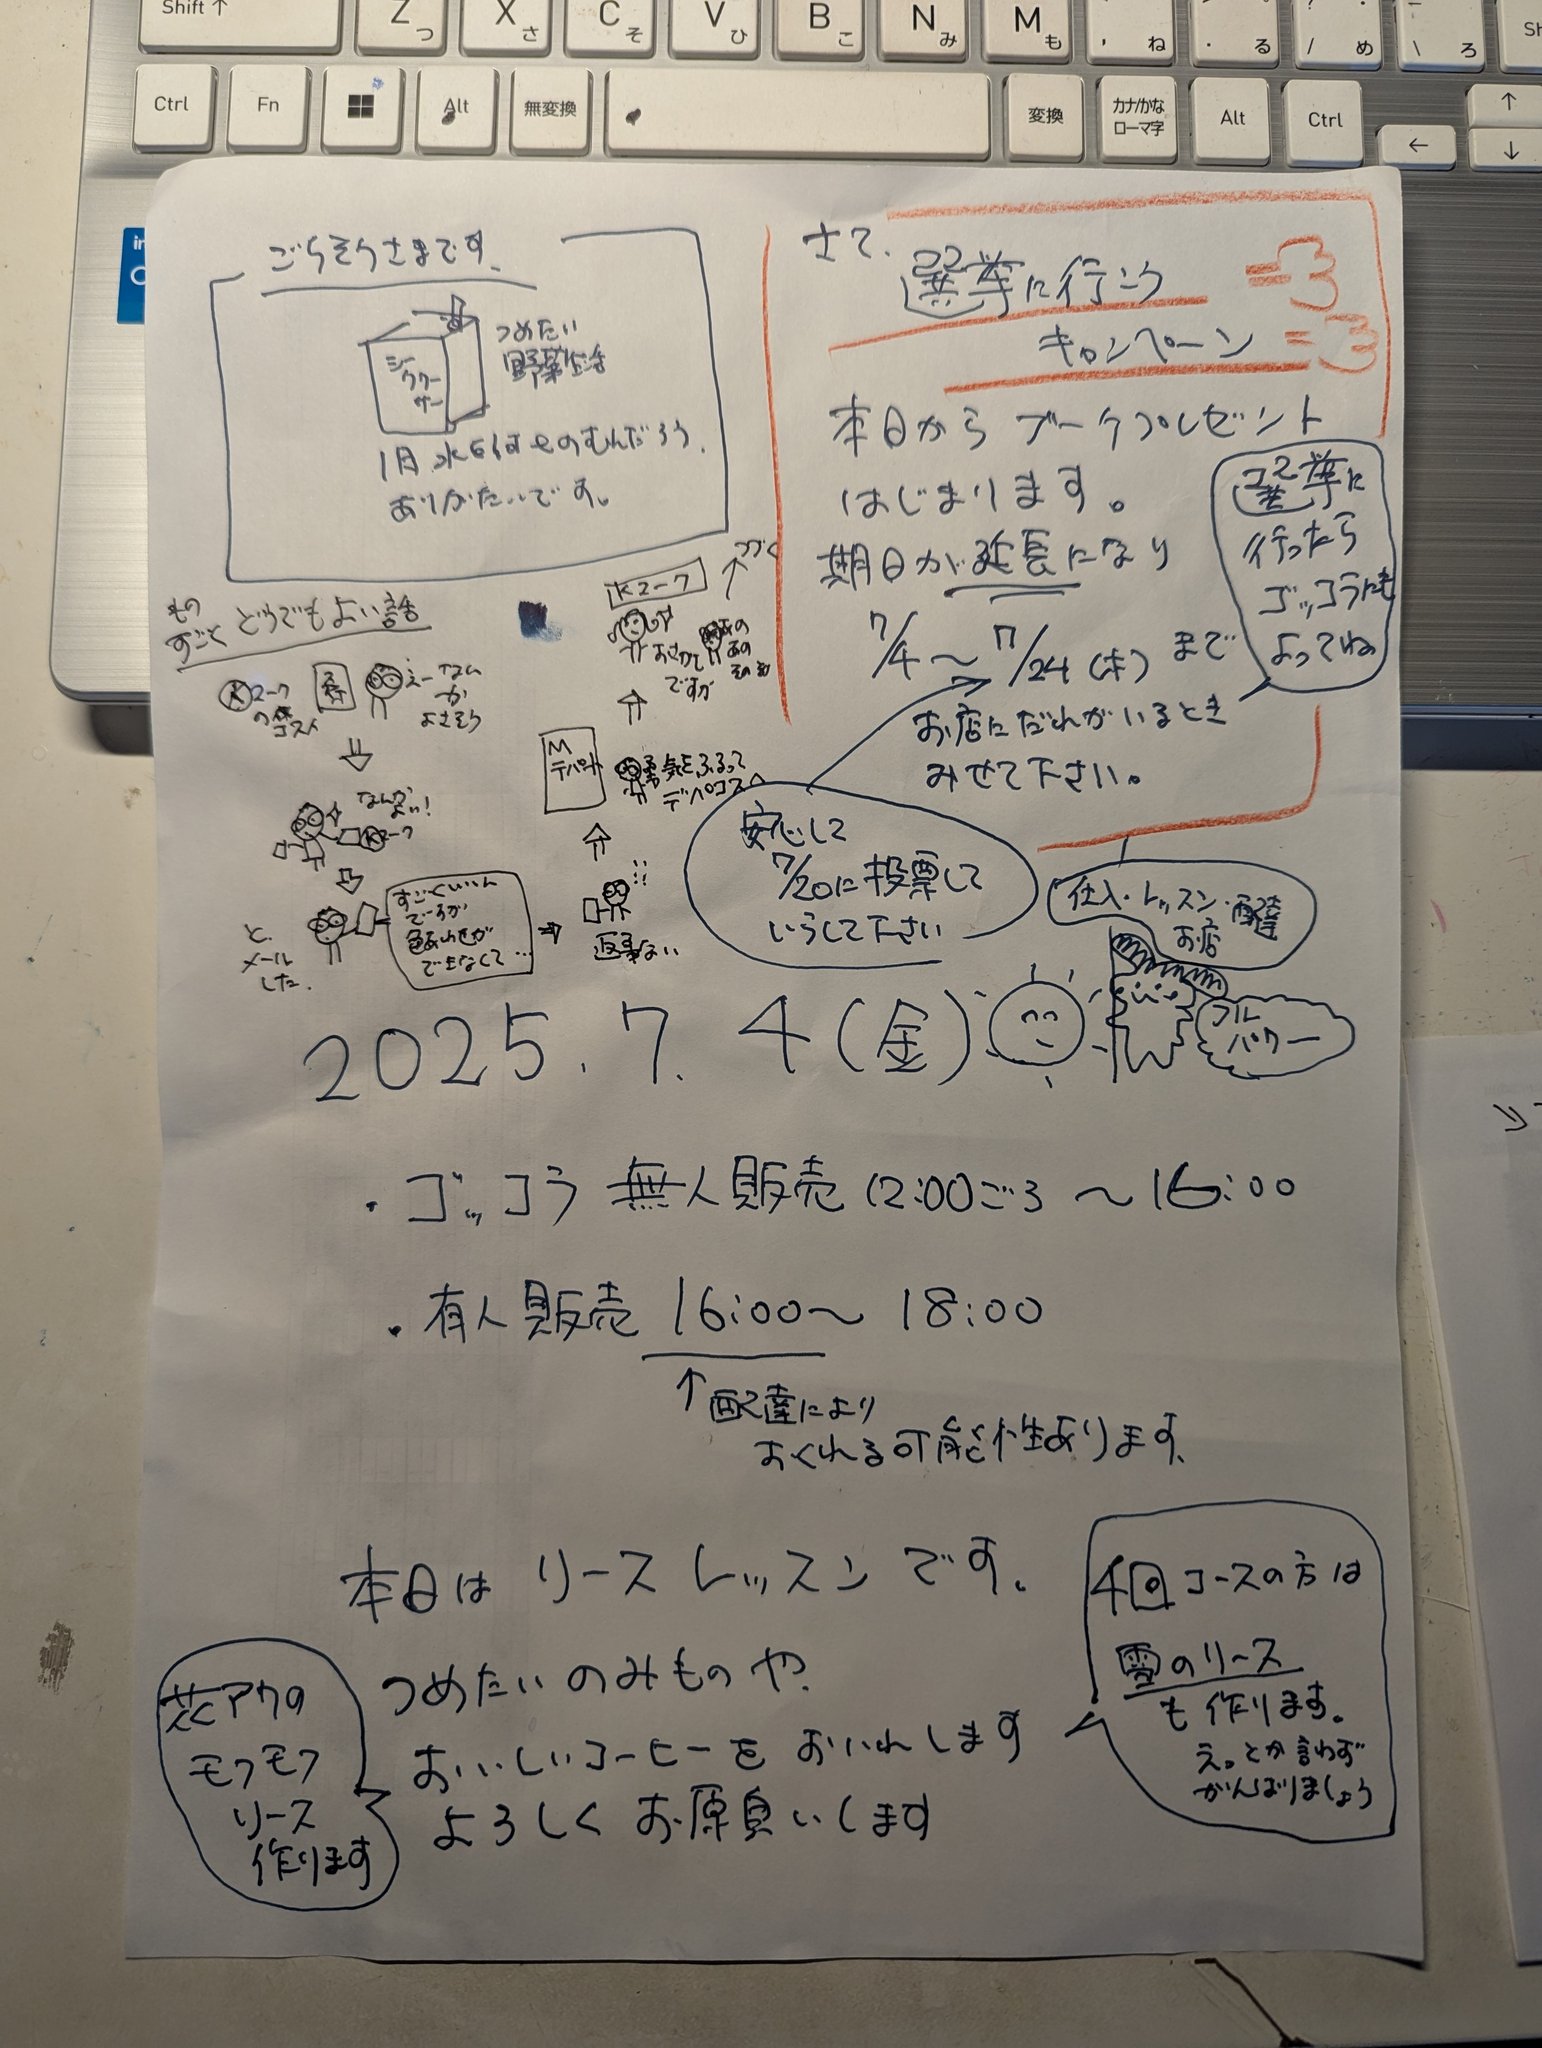 Shift ↑
Z つ
X さ
C そ
V ひ
B こ
N み
M も
, ね
. る
/ め
\ ろ
Ctrl
Fn
Alt
無変換
変換
カナ/かな
ローマ字
Alt
Ctrl
←
↑
↓
ごちそうさまです。
シークワーサー
つめたい
野菜生活
ありがたいです。
さて、
選挙に行こう
キャンペーン
本日からブーケプレゼント
はじまります。
期日が延長になり
7/4〜7/24(木)まで
お店にだれかいるとき
みせて下さい。
選挙に
行ったら
ゴッコラにも
よってね
安心して
7/20に投票して
いらして下さい
もの
すごく どうでもよい話
Kマーク
えーなん
か
よさそう
なんか
よい!
Kマーク
と、
メール
した。
すごくいいん
ですが
色あわせが
できなくて…
返事ない
M
デパート
勇気をふるって
デパコス
Kマーク
ですか
つづく
仕入・レッスン・配達
お店
2025.7.4(金)
フル
パワー
・ゴッコラ 無人販売 12:00ごろ 〜16:00
・有人販売 16:00〜18:00
↑配達により
おくれる可能性あります。
本日は リースレッスンです。
4回コースの方は
雪のリース
も作ります。
えっとか言わず
がんばりましょう
つめたいのみものや
おいしいコーヒーをおいれします
よろしくお願いします
モフモフ
リース
作ります